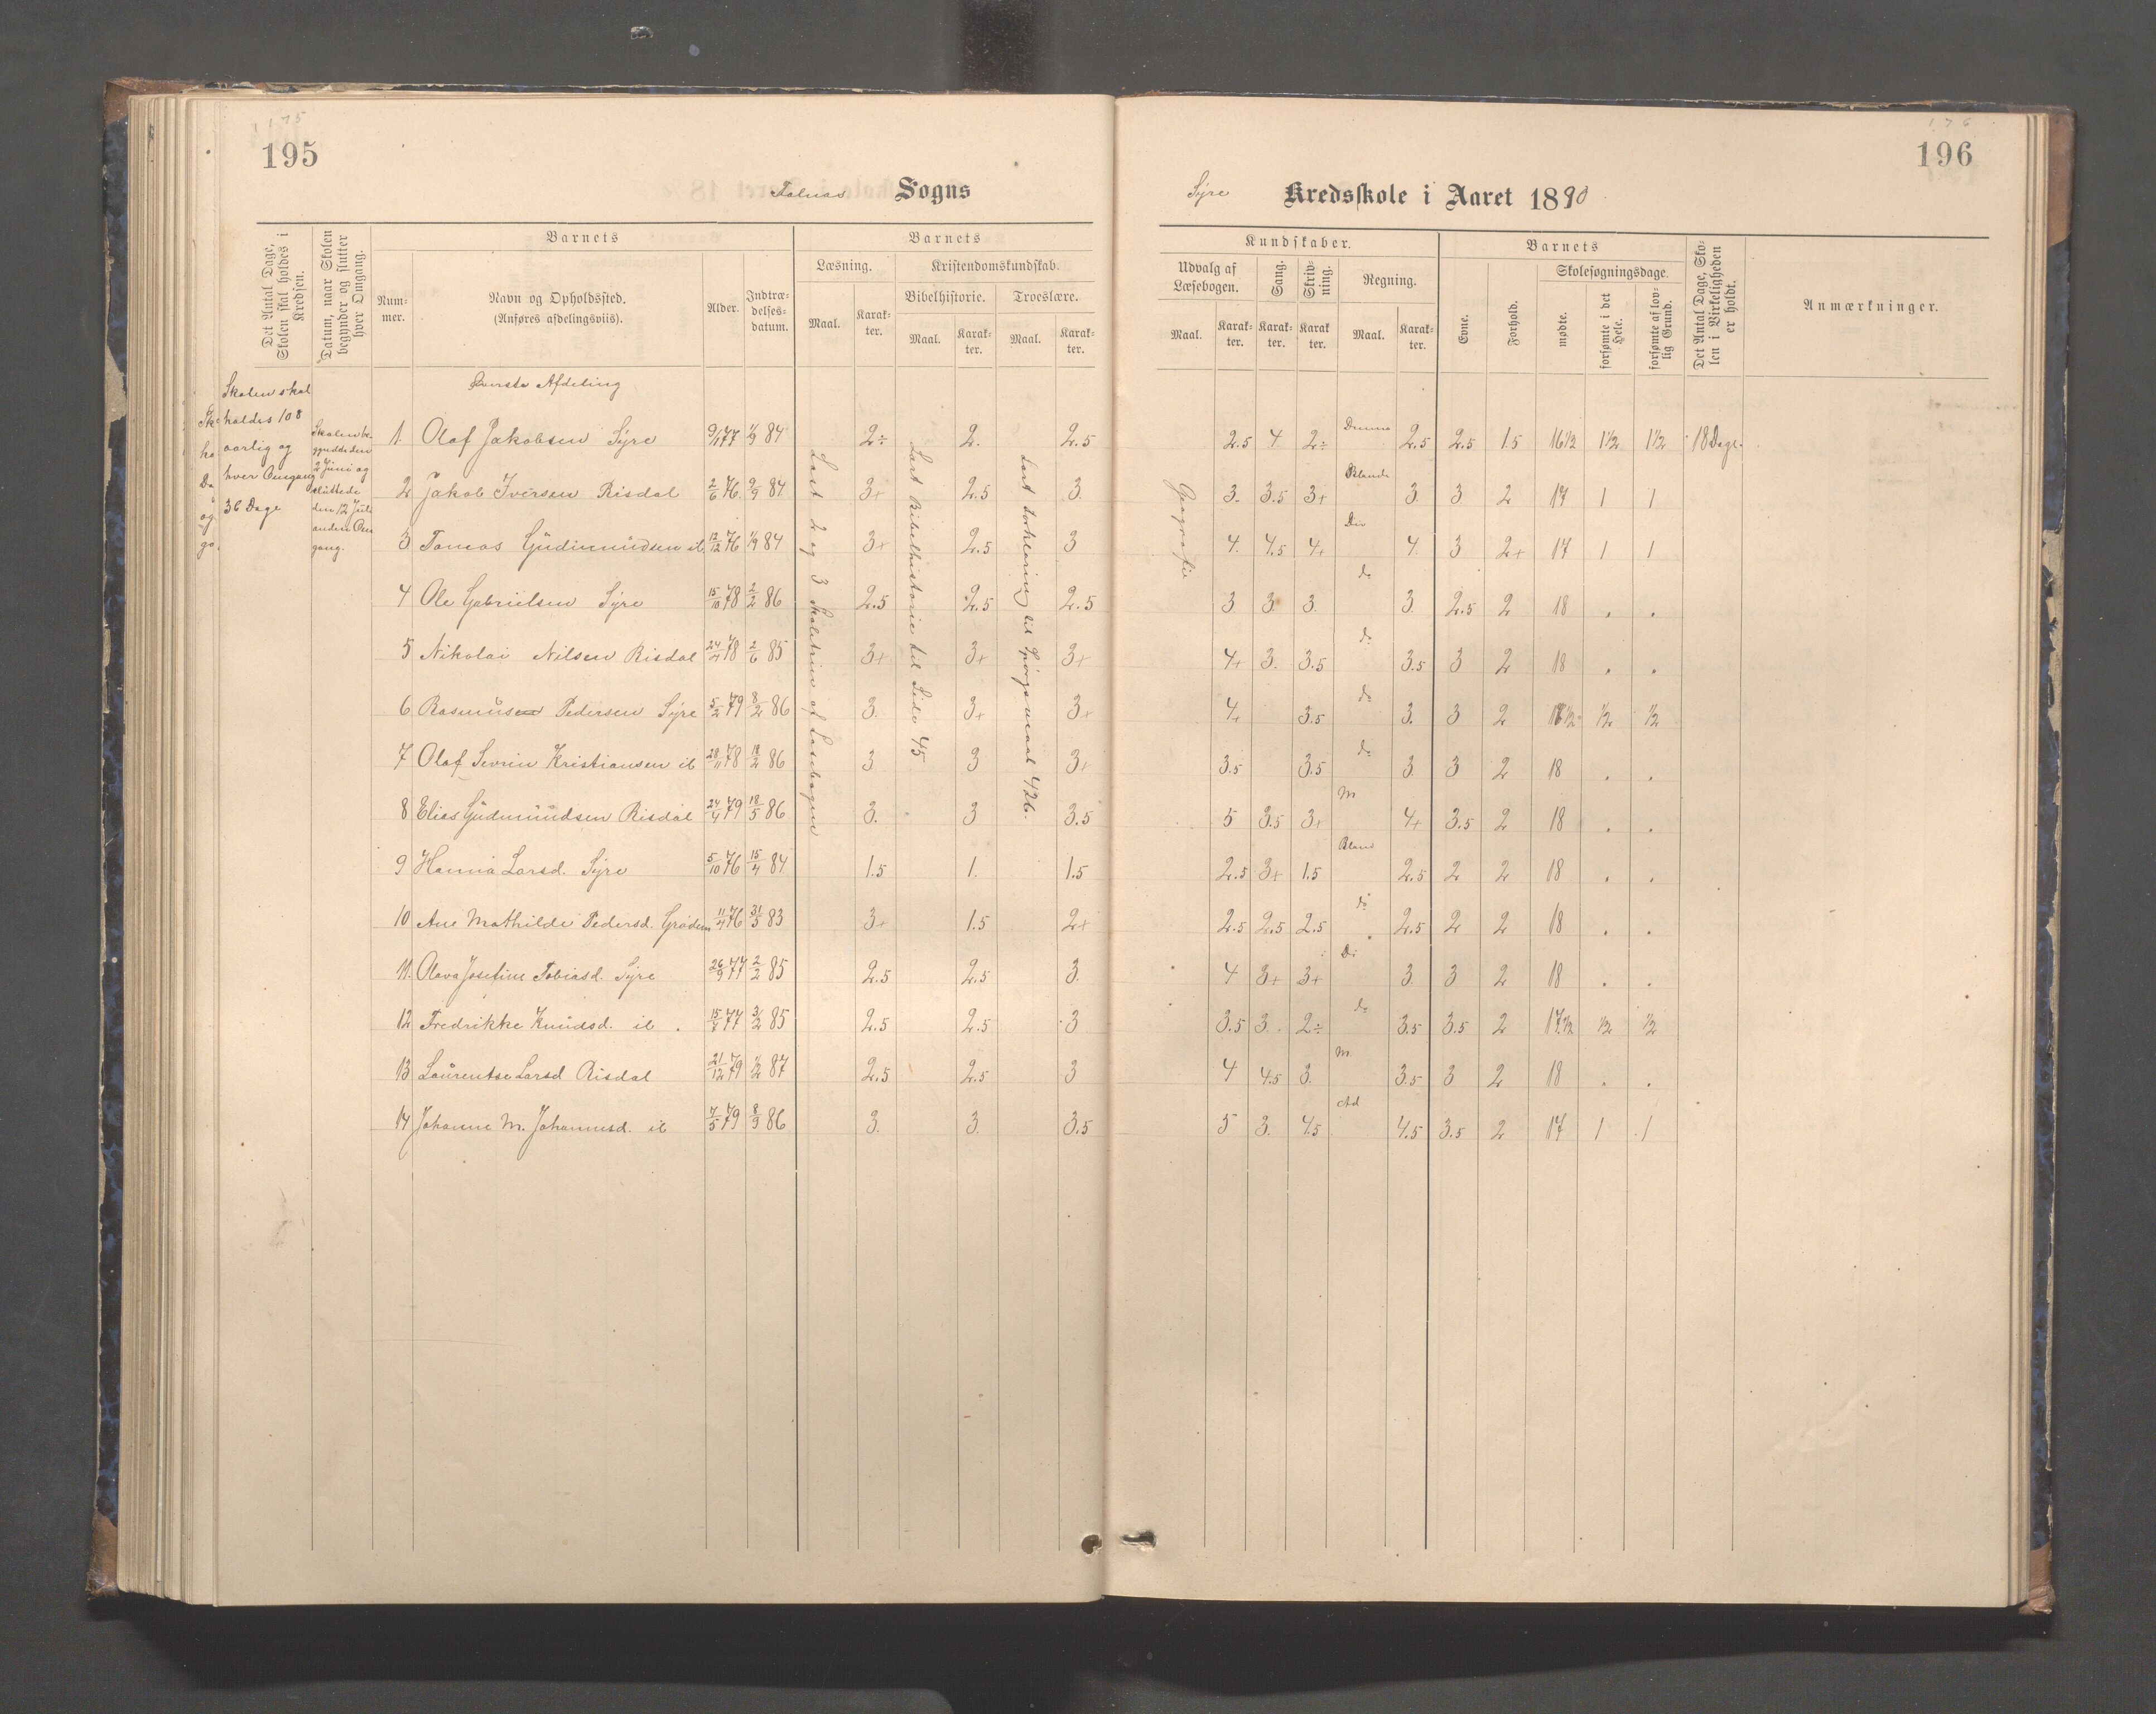 175
195
Falnes Sogns
Det Antal Dage, Skolen skal holdes i Kredsen.
Datum, naar Skolen begynder og slutter hver Omgang.
Barnets
Num-
mer.
Navn og Opholdssted.
(Anføres afdelingsviis).
Alder.
Indtræ-
delses-
datum.
Barnets
Læsning.
Kristendomskundskab.
Bibelhistorie.
Troeslære.
Maal.
Karak-
ter.
Maal.
Karak-
ter.
Maal.
Karak-
ter.
Skolen skal
holdes 108
aarlig og
hver Omgang
36 Dage
Skolen be-
gyndte den
2 Juni og
sluttede
den 12 Juli
anden Om
gang.
Læst 2 og 3 Skoletrin af Læsebogen
Lært Bibelhistorie til Side 45
Lært Forklaring til Spørgsmaal 426.
Øverste Afdeling
1. Olaf Jakobsen Syre 9/1 77 1/9 84 2÷ 2. 2.5
2 Jakob Iversen Risdal 2/6 76. 2/9 84 3+ 2.5 3.
3 Tomas Gudmundsen ib 12/12 76 1/9 84 3+ 2.5 3
4 Ole Gabrielsen Syre 15/10 78 2/2 86 2.5 2.5 2.5
5 Nikolai Nilsen Risdal 24/4 78 2/6 85 3+ 3+ 3+
6 Rasmus Pedersen Syre 5/2 79 8/2 86 3. 3+ 3+
7 Olaf Sevrin Kristiansen ib 28/11 78 18/2 86 3 3 3+
8 Elias Gudmundsen Risdal 24/4 79 18/5 86 3. 3 3.5
9 Hanna Larsd. Syre 5/10 76 15/4 84 1.5 1. 1.5
10 Ane Mathilde Pedersd. Grødem 11/4 76 31/5 83 3+ 1.5 2+
11. Olava Josefine Tobiasd. Syre 26/9 77 2/2 85 2.5 2.5 3.
12 Fredrikke Knudsd. ib. 15/4 77 3/2 85 2.5 2.5 3
13 Laurentse Larsd Risdal 21/12 79 1/2 87 2.5 2.5 3
14 Johanne M. Johannesd. ib 7/5 79 8/9 86 3. 3. 3.5
176
196
Syre Kredsskole i Aaret 1890
Kundskaber.
Udvalg af
Læsebogen.
Sang.
Skriv-
ning.
Regning.
Maal.
Karak-
ter.
Karak-
ter.
Karak
ter.
Maal.
Karak-
ter.
Barnets
Evne.
Forhold.
Skolesøgningsdage.
mødte.
forsømte i det Hele.
forsømte af lov-
lig Grund.
Det Antal Dage, Sko-
len i Virkeligheden
er holdt.
Anmærkninger.
Geografi
2.5 4. 2÷ 2.5 2.5 1.5 16½ 1½ 1½ 18 Dage.
3. 3.5 3+ Blande 3. 3 2 17 1 1
4. 4.5 4+ Div 4. 3 2+ 17 1 1
3 3 3. do 3. 2.5 2 18 . .
4+ 3. 3.5 do 3.5 3 2 18 . .
4+ 3.5 do 3. 3 2 17½ ½ ½
3.5 3.5 do 3. 3 2 18 . .
5 3.5 3+ M 4+ 3.5 2 18 . .
2.5 3+ 1.5 Bland 2.5 2 2 18 . .
2.5 2.5 2.5 do 2.5 2 2 18 . .
4 3+ 3+ Di 3. 3 2 18 . .
3.5 3. 2÷ do 3.5 3.5 2 17½ ½ ½
4 4.5 3. M. 3.5 3 2 18 . .
5 3. 4.5 Ad 4.5 3.5 2 17 1 1